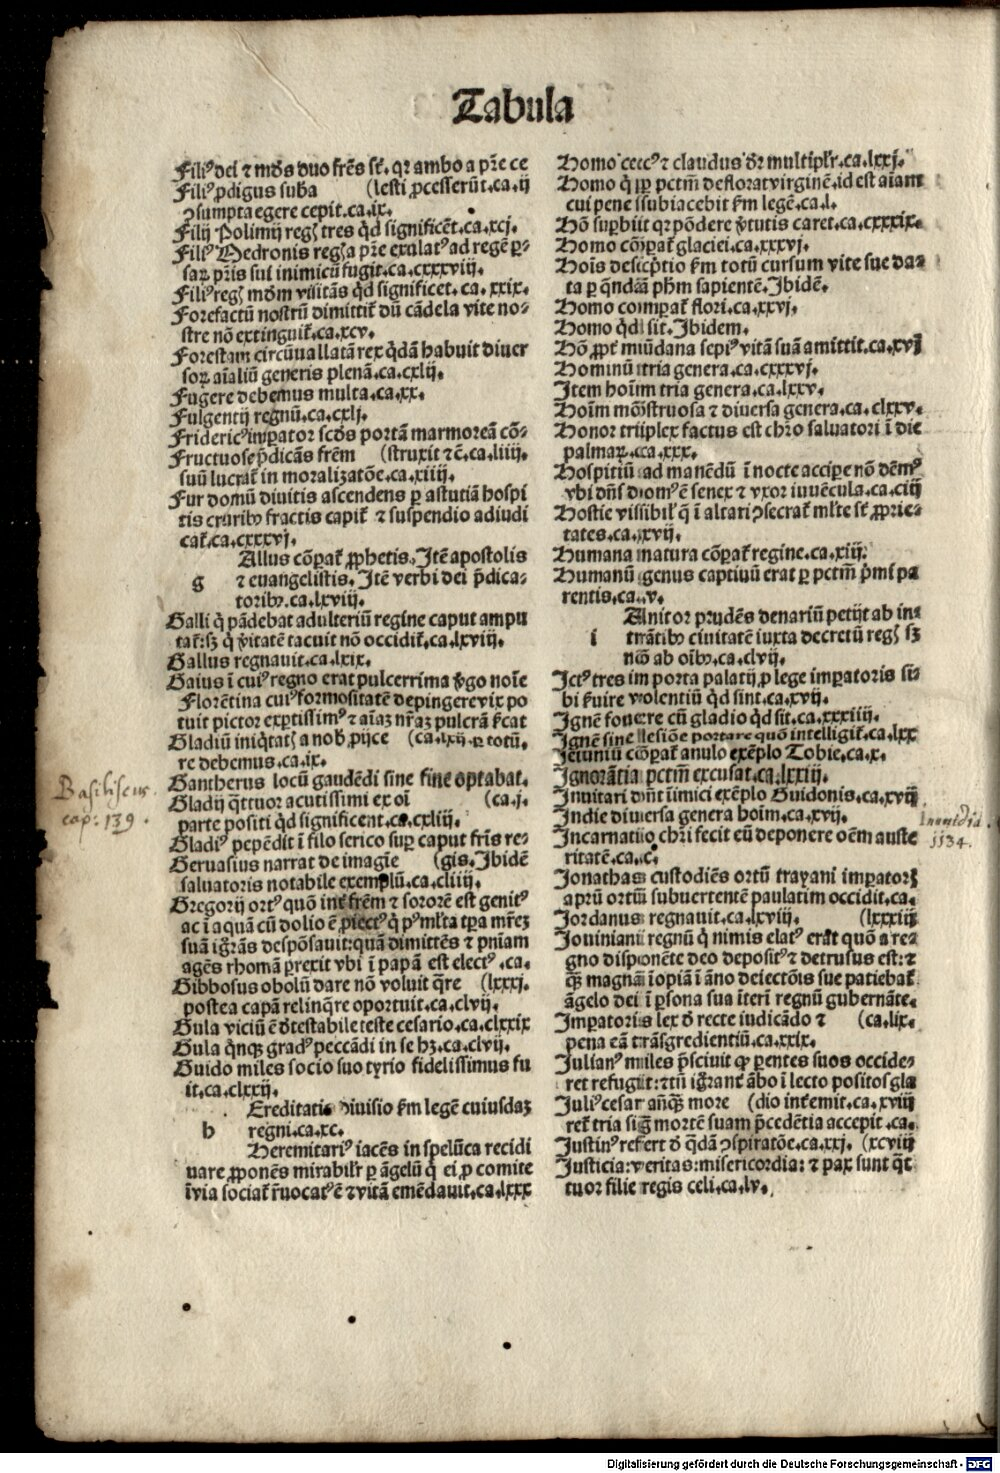 Tabula
Filiꝰ dei ⁊ mūdꝰ duo frēs sūt. qꝛ ambo a pr̄e ce
Filiꝰ ꝓdigus suba (lesti ꝓcesserūt.ca.ij
ꝯsumpta egere cepit.ca.ix.
Filij Polimij regꝭ tres qd̄ significēt.ca.xcj.
Filiꝰ Medronis regꝭ a pr̄e exulatꝰ ad regē ꝑ-
saꝝ pr̄is sui inimicū fugit.ca.cxxxviij.
Filiꝰ regꝭ mūdm visitās qd̄ significet.ca.xxix.
Forefactū nostrū dimittit̄ dū cādela vite no-
stre nō extinguit̄.ca.xcv.
Forestam circūuallatā rex qd̄ā habuit diuer
soꝝ aīaliū generis plenā.ca.cxlij.
Fugere debemus multa.ca.xx.
Fulgentij regnū.ca.cxlj.
Fridericꝰ imꝑator scd̄s portā marmoreā cō-
Fructuose p̄dicās frēm (struxit ⁊ c̄.ca.liiij.
suū lucrat̄ in moralizatōe.ca.xiiij.
Fur domū diuitis ascendens ꝑ astutiā hospi
tis cruribꝰ fractis capit̄ ⁊ suspendio adiudi
cat̄.ca.cxxxvj.
Allus cōꝑat̄ ꝓphetis. Itē apostolis
g ⁊ euangelistis. Itē verbi dei p̄dica-
toribꝰ.ca.lxviij.
Galli q̄ pādebat adulteriū regine caput ampu
tat̄: sꝫ q̄ v̄itatē tacuit nō occidit̄.ca.lxviij.
Gallus regnauit.ca.lxix.
Gaius ī cuiꝰ regno erat pulcerrima v̄go noīe
Florētina cuiꝰ formositatē depingere vix po
tuit pictor exꝑtissimꝰ ⁊ aīaꝫ nr̄aꝫ pulcrā fecat
Gladiū iniq̄tatꝭ a nob̄ ꝓijce (ca.lxij. ꝑ totū.
re debemus.ca.ix.
Gantherus locū gaudēdi sine fine optabat.
Gladij q̄ttuor acutissimi ex oī (ca.j.
parte positi qd̄ significent.ca.cxliij.
Gladiꝰ pepēdit ī filo serico suꝑ caput fr̄is re-
Geruasius narrat de imagīe (gis. Ibidē
saluatoris notabile exemplū.ca.cliiij.
Gregorij ortꝰ quō inter̄ frēm ⁊ sororē est genitꝰ
ac ī aquā cū dolio ē ꝓiectꝰ q̄ pꝰ ml̄ta tꝑa mr̄eꝫ
suā ig̃rās despōsauit: quā dimittēs ⁊ pn̄iam
agēs rhomā ꝑrexit vbi ī papā est electꝰ.ca.
Gibbosus obolū dare nō voluit q̄re (lxxxj.
postea capā relinq̄re oportuit.ca.clvij.
Gula viciū ē d̄testabile teste cesario.ca.clxxix
Gula q̄nqꝫ gradꝰ peccādi in se hꝫ.ca.clvij.
Guido miles socio suo tyrio fidelissimus fu
it.ca.clxxij.
Ereditatis diuisio fm legē cuiusdaꝫ
h regni.ca.xc.
Heremitariꝰ iacēs in spelūca recidi
uare ꝓponēs mirabilr̄ ꝑ āgelū q̄ ei ꝓ comite
īvia sociat̄ r̄uocatꝰ ē ⁊ vitā emēdauit.ca.lxxx
Homo cecꝰ ⁊ claudus dr̄ multiplr̄.ca.lxxj.
Homo q̄ iꝑ pctm̄ deflorat virginē.id est aīam
cui pene isubiacebit fm legē.ca.l.
Hō suꝑbiit qꝛ pōdere v̄tutis caret.ca.cxxxix.
Homo cōꝑat̄ glaciei.ca.xxxvj.
Hoīs descip̄tio fm totū cursum vite sue da-
ta ꝑ qnd̄ā phm̄ sapientē. Ibidē.
Homo comꝑat̄ flori.ca.xxvj.
Homo qd̄ sit. Ibidem.
Hō ꝓpt̄ mūdana sepiꝰ vitā suā amittit.ca.xvj
Hominū tria genera.ca.cxxxvj.
Item hoīm tria genera.ca.lxxv.
Hoīm mōstruosa ⁊ diuersa genera.ca.clxxv.
Honor triplex factus est chr̄o saluatori ī die
palmaꝝ.ca.xxx.
Hospitiū ad manēdū ī nocte accipe nō dēmꝰ
vbi dn̄s domꝰ ē senex ⁊ vxor iuuēcula.ca.ciij
Hostie vissibilꝰ q̄ ī altari ꝯsecrat̄ ml̄te sūt ꝓprie-
tates.ca.xvij.
Humana natura cōꝑat̄ regine.ca.xiij.
Humanū genus captiuū erat ꝑ pctm̄ p̄mi pa
rentis.ca.v.
Anitor prudēs denariū petijt ab in-
i trātibꝰ ciuitatē iuxta decretū regꝭ sꝫ
nō ab oībꝰ.ca.clvij.
Ictꝰ tres im porta palatij ꝓ lege imꝑatoris si-
bi ẜuire volentiū qd̄ sint.ca.xvij.
Ignē fouere cū gladio qd̄ sit.ca.xxxiiij.
Ignē sine lesiōe portare quō intelligit̄.ca.lxx
Ieiuniū cōꝑat̄ anulo exēplo Tobie.ca.x.
Ignorātia pctm̄ excusat.ca.lxxiij.
Inuitari dn̄t īimici exēplo Guidonis.ca.xvij
Indie diuersa genera hoīm.ca.xvij.
Incarnatio chr̄i fecit eū deponere oēm auste
ritatē.ca.c.
Jonathas custodiēs ortū trayani imꝑatorꝭ
aprū ortū subuertentē paulatim occidit.ca.
Jordanus regnauit.ca.lxviij. (lxxxiij
Jouiniani regnū q̄ nimis elatꝰ erat quō a re-
gno disponēte deo depositꝰ ⁊ detrusus est: ⁊
qꝫ magnā īopiā ī āno deiectōis sue patiebat̄
āgelo dei ī ꝑsona sua īterī regnū gubernāte.
Imꝑatoris lex d̄ recte iudicādo ⁊ (ca.lix.
pena eā trāsgredientiū.ca.xxix.
Julianꝰ miles p̄sciuit ꝙ ꝑentes suos occide-
ret refugit: ⁊tū ig̃rant̄ ābo ī lecto positos gla
Juliꝰ cesar añqꝫ more (dio int̄emit.ca.xviij
ret̄ tria sig̃ mortē suam p̄cedētia accepit.ca.
Justinꝰ refert d̄ qd̄ā ꝯspiratōe.ca.xxj. (xcviij
Justicia: veritas: misericordia: ⁊ pax sunt q̄t
tuor filie regis celi.ca.lv.
Basiliscus.
cap: 139.
1134.
Digitalisierung gefördert durch die Deutsche Forschungsgemeinschaft - DFG